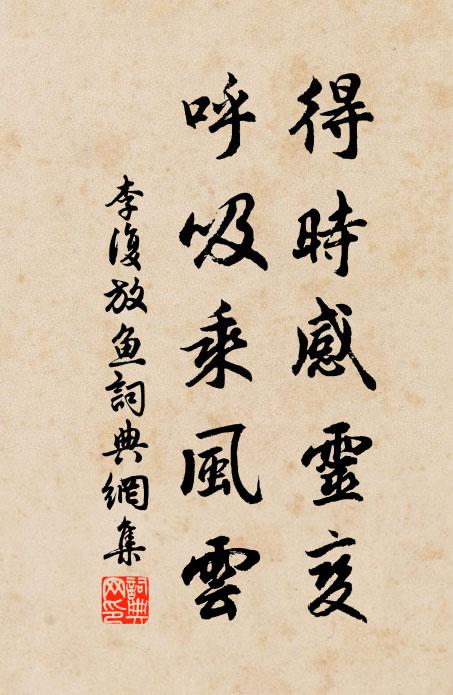 得時感靈变
呼吸乘風雲
李復放鱼詞典網集
詞典网印